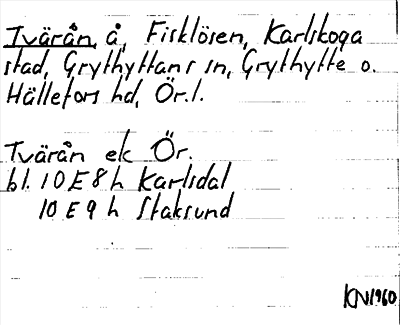 Tvärån, å, Fisklösen, Karlskoga
stad, Grythyttans sn, Grythytte o.
Hällefors hd, Ör.l.
Tvärån ek Ör.
bl. 10 E 8 h Karlsdal
10 E 9 h Staksund
KN1960